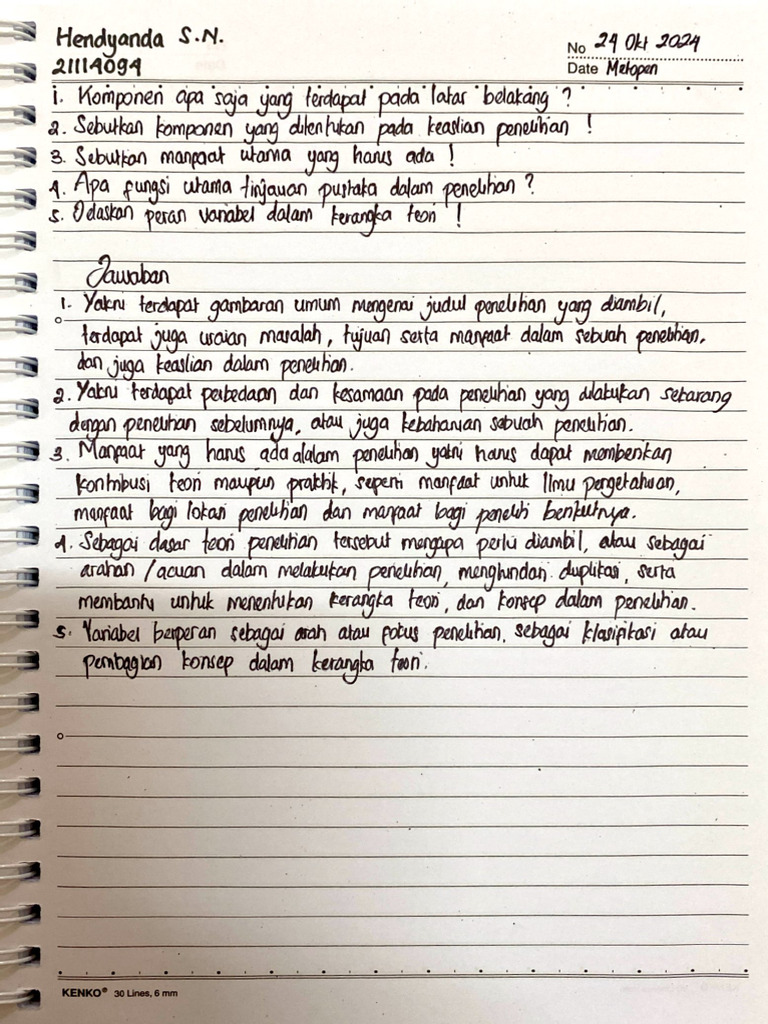 Hendyanda S.N.
21114094
No 24 Okt 2024
Date Metopen
1. Komponen apa saja yang terdapat pada latar belakang ?
2. Sebutkan komponen yang ditentukan pada keaslian penelitian !
3. Sebutkan manfaat utama yang harus ada !
4. Apa fungsi utama tinjauan pustaka dalam penelitian ?
5. Jelaskan peran variabel dalam kerangka teori !
Jawaban
1. Yakni terdapat gambaran umum mengenai judul penelitian yang diambil,
terdapat juga uraian masalah, tujuan serta manfaat dalam sebuah penelitian,
dan juga keaslian dalam penelitian.
2. Yakni terdapat perbedaan dan kesamaan pada penelitian yang dilakukan sekarang
dengan penelitian sebelumnya, atau juga kebaharuan sebuah penelitian.
3. Manfaat yang harus ada didalam penelitian yakni harus dapat memberikan
kontribusi teori maupun praktik, seperti manfaat untuk ilmu pengetahuan,
manfaat bagi lokasi penelitian dan manfaat bagi peneliti berikutnya.
4. Sebagai dasar teori penelitian tersebut mengapa perlu diambil, atau sebagai
arahan / acuan dalam melakukan penelitian, menghindari duplikasi, serta
membantu untuk menentukan kerangka teori, dan konsep dalam penelitian.
5. Variabel berperan sebagai arah atau fokus penelitian, sebagai klasifikasi atau
pembagian konsep dalam kerangka teori.
KENKO® 30 Lines, 6 mm